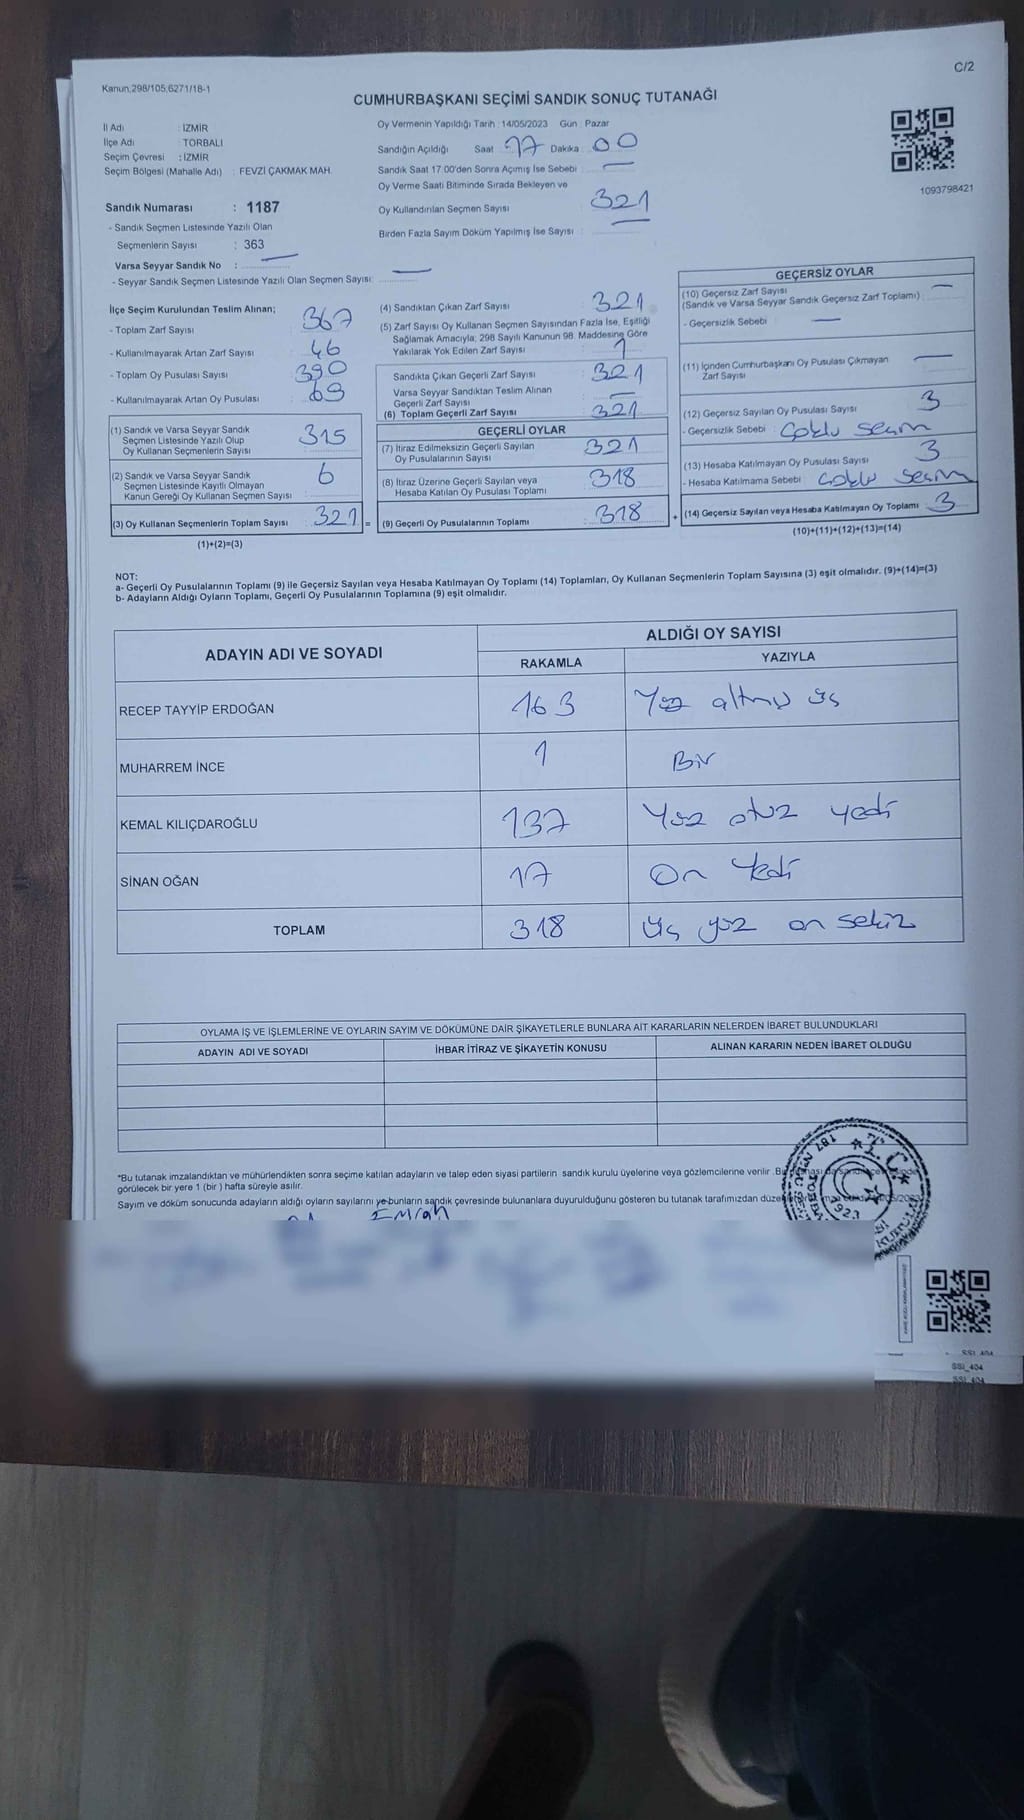 C/2
Kanun.298/105,6271/18-1
CUMHURBAŞKANI SEÇİMİ SANDIK SONUÇ TUTANAĞI
İl Adı : İZMİR
İlçe Adı : TORBALI
Seçim Çevresi : İZMİR
Seçim Bölgesi (Mahalle Adı) : FEVZİ ÇAKMAK MAH.
Sandık Numarası : 1187
- Sandık Seçmen Listesinde Yazılı Olan
Seçmenlerin Sayısı : 363
Varsa Seyyar Sandık No : —
- Seyyar Sandık Seçmen Listesinde Yazılı Olan Seçmen Sayısı: —
Oy Vermenin Yapıldığı Tarih : 14/05/2023 Gün : Pazar
Sandığın Açıldığı Saat 17 Dakika 00
Sandık Saat 17:00'den Sonra Açımış İse Sebebi : —
Oy Verme Saati Bitiminde Sırada Bekleyen ve
Oy Kullandırılan Seçmen Sayısı : 321
Birden Fazla Sayım Döküm Yapılmış İse Sayısı : —
1093798421
İlçe Seçim Kurulundan Teslim Alınan;
- Toplam Zarf Sayısı : 367
- Kullanılmayarak Artan Zarf Sayısı : 46
- Toplam Oy Pusulası Sayısı : 390
- Kullanılmayarak Artan Oy Pusulası : 69
(1) Sandık ve Varsa Seyyar Sandık
Seçmen Listesinde Yazılı Olup
Oy Kullanan Seçmenlerin Sayısı : 315
(2) Sandık ve Varsa Seyyar Sandık
Seçmen Listesinde Kayıtlı Olmayan
Kanun Gereği Oy Kullanan Seçmen Sayısı : 6
(3) Oy Kullanan Seçmenlerin Toplam Sayısı : 321 =
(1)+(2)=(3)
(4) Sandıktan Çıkan Zarf Sayısı : 321
(5) Zarf Sayısı Oy Kullanan Seçmen Sayısından Fazla İse, Eşitliği
Sağlamak Amacıyla; 298 Sayılı Kanunun 98. Maddesine Göre
Yakılarak Yok Edilen Zarf Sayısı :
Sandıkta Çıkan Geçerli Zarf Sayısı : 321
Varsa Seyyar Sandıktan Teslim Alınan
Geçerli Zarf Sayısı : —
(6) Toplam Geçerli Zarf Sayısı : 321
GEÇERLİ OYLAR
(7) İtiraz Edilmeksizin Geçerli Sayılan
Oy Pusulalarının Sayısı : 321
(8) İtiraz Üzerine Geçerli Sayılan veya
Hesaba Katılan Oy Pusulası Toplamı : 318
(9) Geçerli Oy Pusulalarının Toplamı : 318 +
GEÇERSİZ OYLAR
(10) Geçersiz Zarf Sayısı : —
(Sandık ve Varsa Seyyar Sandık Geçersiz Zarf Toplamı)
- Geçersizlik Sebebi : —
(11) İçinden Cumhurbaşkanı Oy Pusulası Çıkmayan : —
Zarf Sayısı
(12) Geçersiz Sayılan Oy Pusulası Sayısı : 3
- Geçersizlik Sebebi : Çoklu seçim
(13) Hesaba Katılmayan Oy Pusulası Sayısı : 3
- Hesaba Katılmama Sebebi : Çoklu seçim
(14) Geçersiz Sayılan veya Hesaba Katılmayan Oy Toplamı : 3
(10)+(11)+(12)+(13)=(14)
NOT:
a- Geçerli Oy Pusulalarının Toplamı (9) ile Geçersiz Sayılan veya Hesaba Katılmayan Oy Toplamı (14) Toplamları, Oy Kullanan Seçmenlerin Toplam Sayısına (3) eşit olmalıdır. (9)+(14)=(3)
b- Adayların Aldığı Oyların Toplamı, Geçerli Oy Pusulalarının Toplamına (9) eşit olmalıdır.
ADAYIN ADI VE SOYADI ALDIĞI OY SAYISI
RAKAMLA YAZIYLA
RECEP TAYYİP ERDOĞAN 163 Yüz altmış üç
MUHARREM İNCE 1 Bir
KEMAL KILIÇDAROĞLU 137 Yüz otuz yedi
SİNAN OĞAN 17 On Yedi
TOPLAM 318 Üç yüz on sekiz
OYLAMA İŞ VE İŞLEMLERİNE VE OYLARIN SAYIM VE DÖKÜMÜNE DAİR ŞİKAYETLERLE BUNLARA AİT KARARLARIN NELERDEN İBARET BULUNDUKLARI
ADAYIN ADI VE SOYADI İHBAR İTİRAZ VE ŞİKAYETİN KONUSU ALINAN KARARIN NEDEN İBARET OLDUĞU
*Bu tutanak imzalandıktan ve mühürlendikten sonra seçime katılan adayların ve talep eden siyasi partilerin sandık kurulu üyelerine veya gözlemcilerine verilir.
görülecek bir yere 1 (bir ) hafta süreyle asılır.
Sayım ve döküm sonucunda adayların aldığı oyların sayılarını ve bunların sandık çevresinde bulunanlara duyurulduğunu gösteren bu tutanak tarafımızdan
Emrah
T.C.
1923
SSİ_404
SSİ_404
SSİ_404